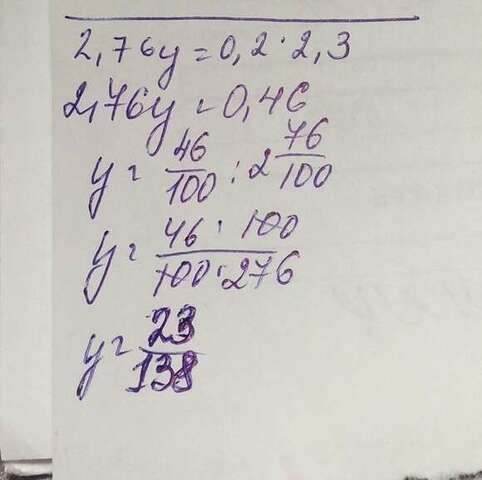 2,76y = 0,2 · 2,3
2,76y = 0,46
y = 46/100 : 2 76/100
y = 46 · 100 / 100 · 276
y = 23/138